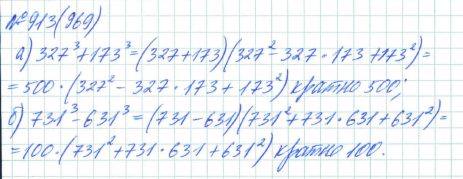 № 913(969)
а) 327³+173³=(327+173)(327²-327·173+173²)=
=500·(327²-327·173+173²) кратно 500;
б) 731³-631³=(731-631)(731²+731·631+631²)=
=100·(731²+731·631+631²) кратно 100.